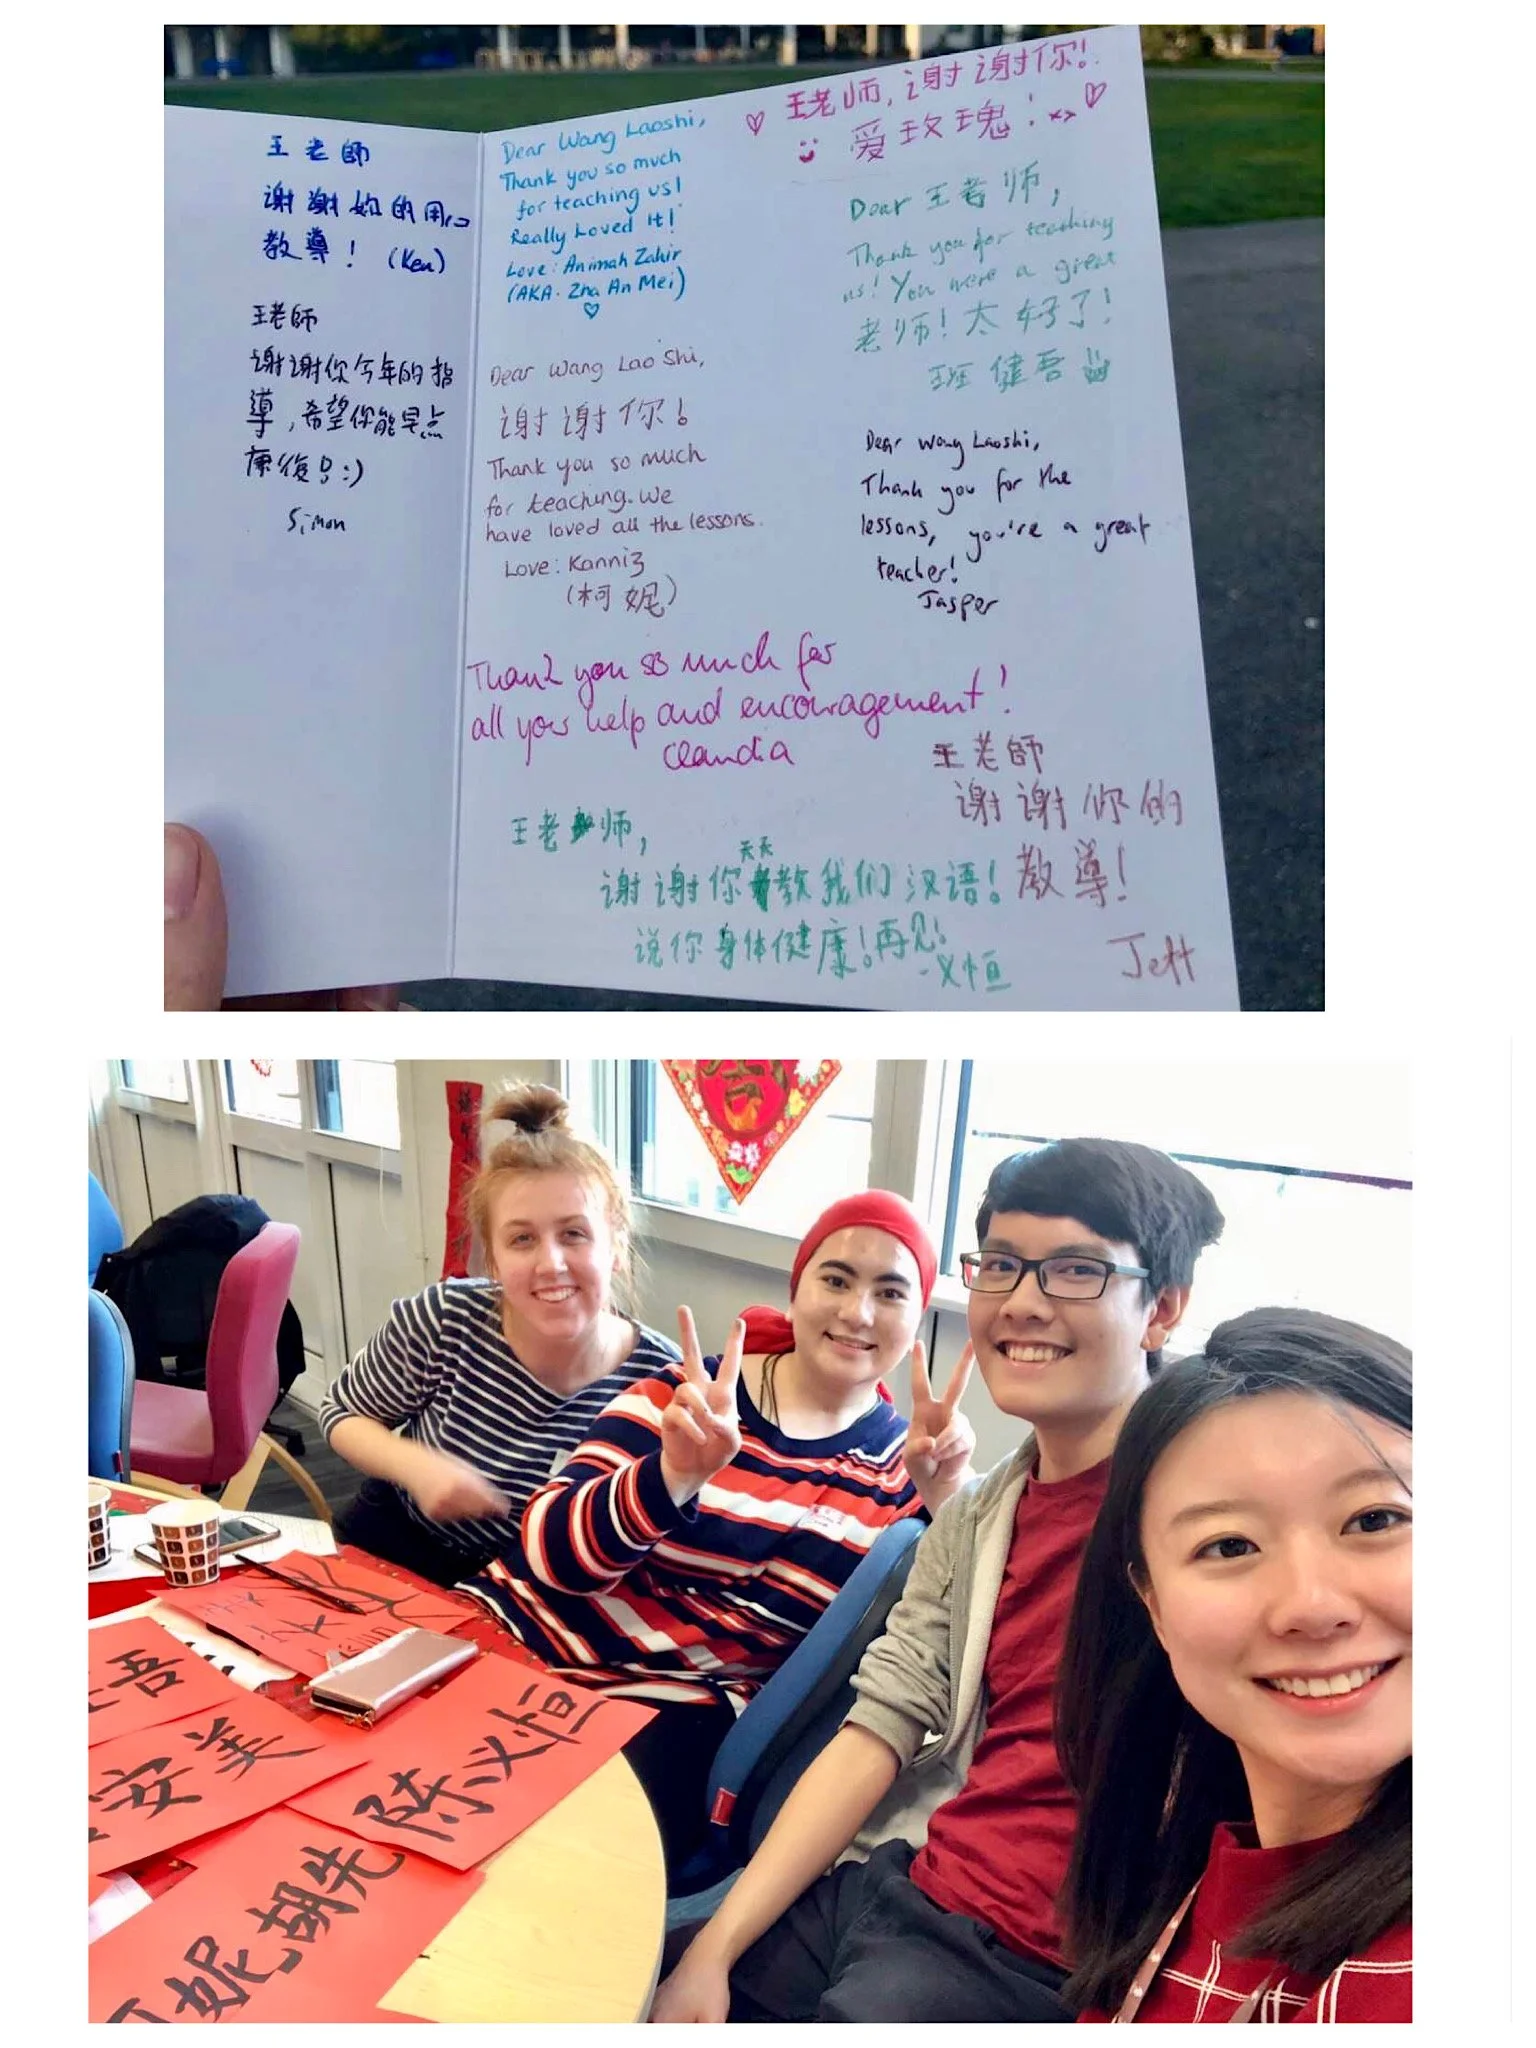 王老師
谢谢妳的用心
教導！(Ken)
王老師
谢谢你今年的指
導，希望你能早点
康復！:)
Simon
Dear Wang Laoshi,
Thank you so much
for teaching us!
Really Loved It!
Love: Animah Zahir
(AKA. Zha An Mei)
Dear Wang Lao Shi,
谢谢你！
Thank you so much
for teaching. We
have loved all the lessons.
Love: Kanniz
(柯妮)
王老师，谢谢你！
爱玫瑰！
Dear 王老师，
Thank you for teaching
us! You were a great
老师！太好了！
班健吾
Dear Wang Laoshi,
Thank you for the
lessons, you're a great
teacher!
Jasper
Thank you so much for
all your help and encouragement!
Claudia
王老師
谢谢你的
教導！
Jett
王老师，
谢谢你天天教我们汉语！
说你身体健康！再见！
-义恒
吾
安美
陈义恒
妮 胡先